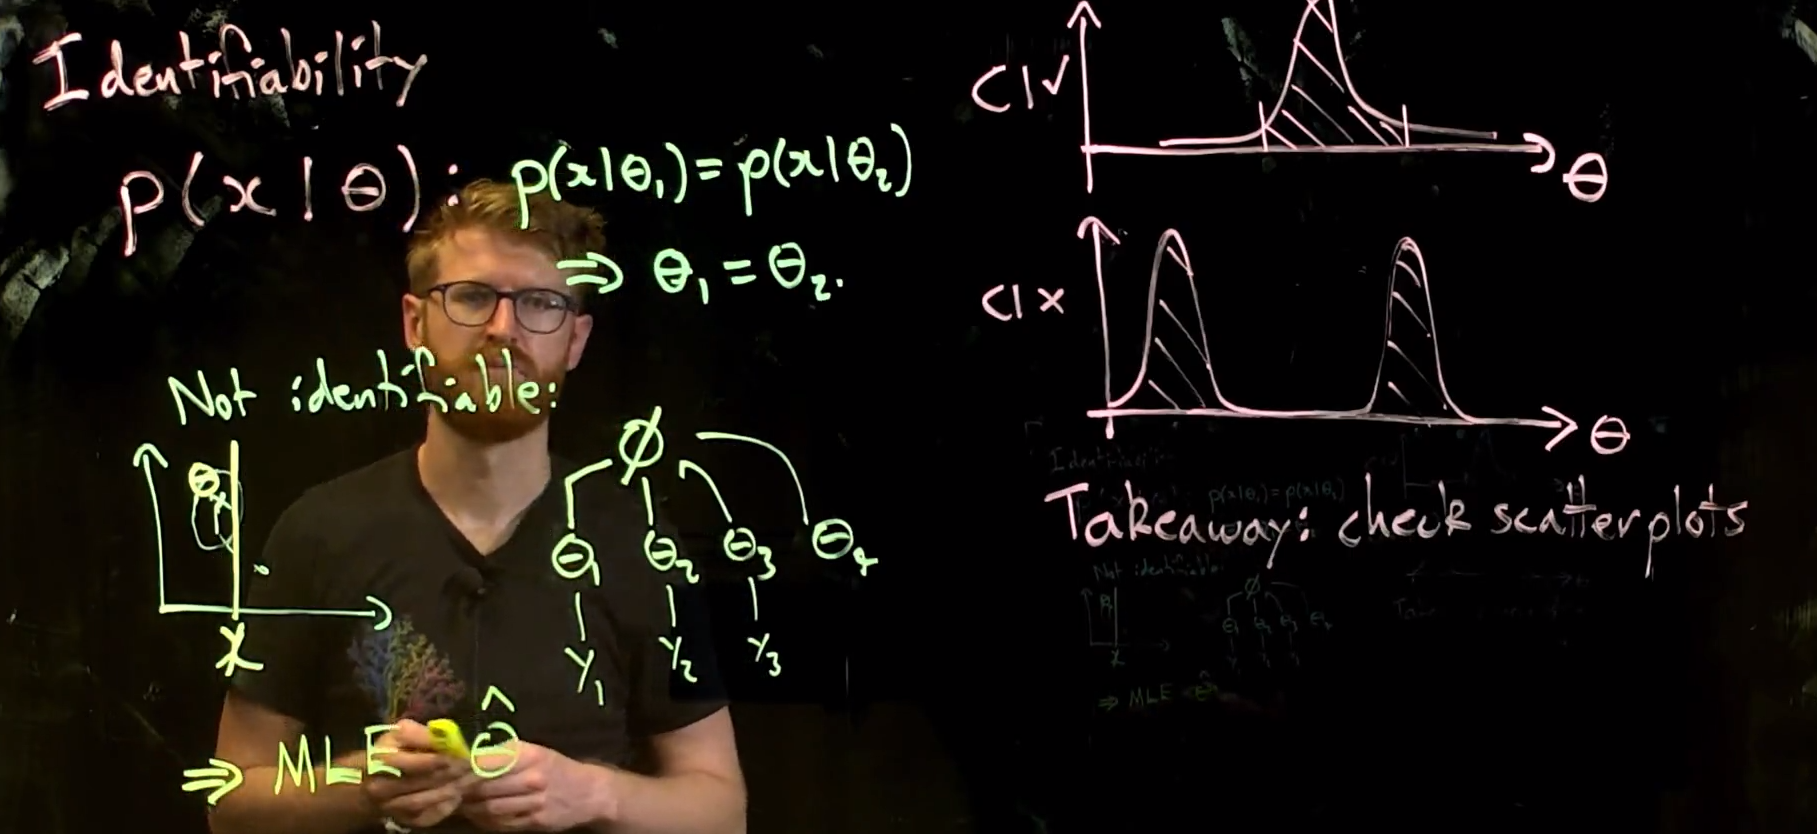 Identifiability
p(x|θ): p(x|θ₁) = p(x|θ₂)
⇒ θ₁ = θ₂.
Not identifiable:
θ
x
ϕ
θ₁ θ₂ θ₃
y₁ y₂ y₃
⇒ MLE θ̂
CI ✓
θ
CI ×
θ
Takeaway: check scatterplots